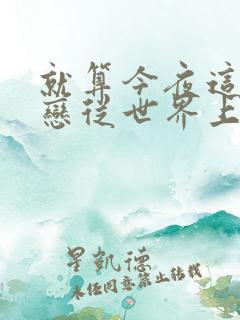 就算今夜這
戀從世界上
星凱德
未經同意禁止轉載